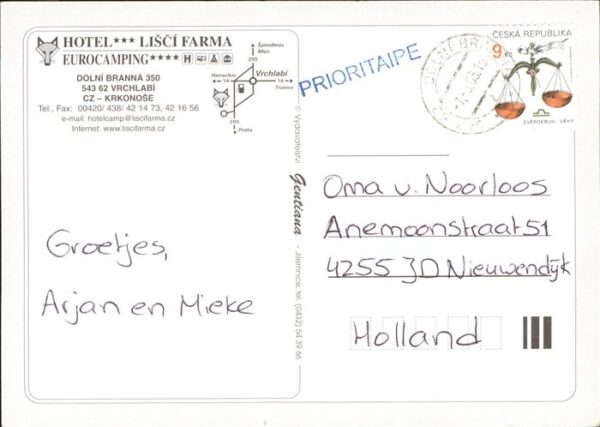 HOTEL*** LIŠČÍ FARMA
EUROCAMPING****
DOLNÍ BRANNÁ 350
543 62 VRCHLABÍ
CZ – KRKONOŠE
Tel., Fax: 00420/ 438/ 42 14 73, 42 16 56
e-mail: hotelcamp@liscifarma.cz
Internet: www.liscifarma.cz
Špindlerův
Mlýn
295
Vrchlabí
Harrachov
14
14
Trutnov
295
Praha
PRIORITAIPE
ČESKÁ REPUBLIKA
9 Kč
ZVĚROKRUH - VÁHY
DOLNÍ BRANNÁ
© Vydavatelství Gentiana - Jilemnice, tel. (0432) 54 39 66
Groetjes,
Arjan en Mieke
Oma v. Noorloos
Anemoonstraat 51
4255 JD Nieuwendijk
Holland